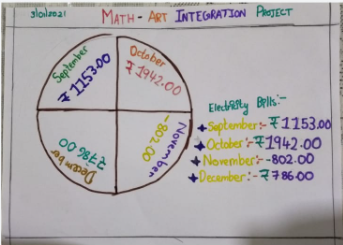 31/01/2021
MATH - ART INTEGRATION PROJECT
September
₹ 1153.00
October
₹ 1942.00
December
₹ 786.00
November
-802.00
Electricity Bills:-
September:- ₹1153.00
October:- ₹1942.00
November:- -802.00
December:- ₹786.00